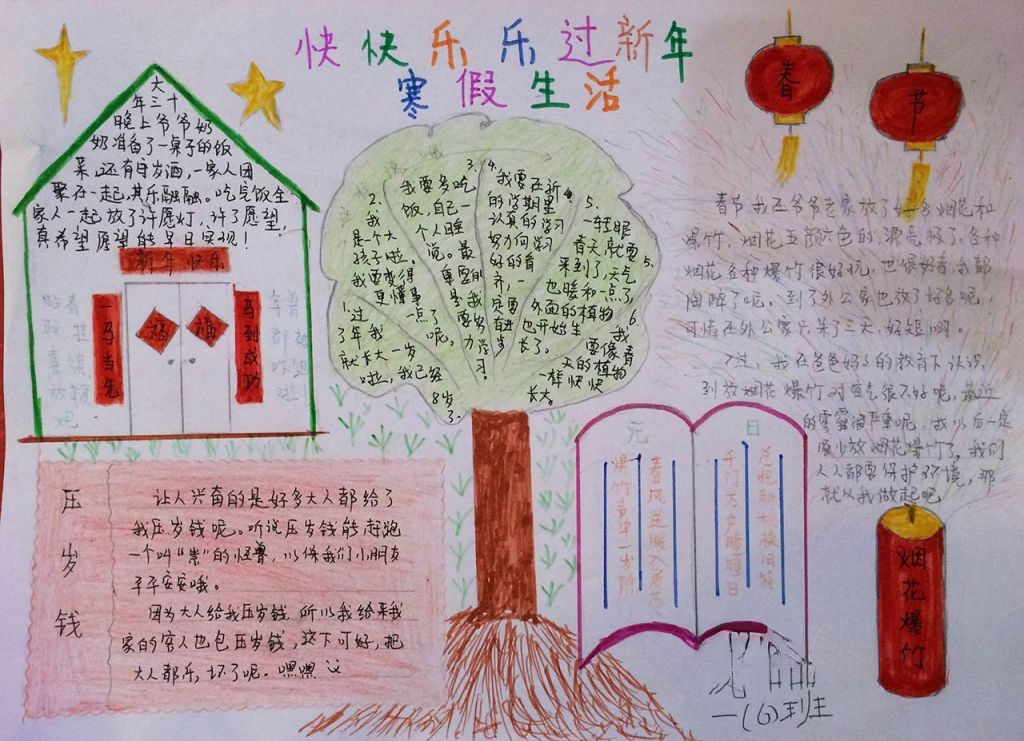 快快乐乐过新年
寒假生活
春
节
大
年三十
晚上爷爷奶
奶准备了一桌子的饭
菜,还有守岁酒,一家人团
聚在一起,其乐融融。吃完饭全
家人一起放了许愿灯,许了愿望,
真希望愿望能早日实现!
新年快乐
一马当先
福
福
马到成功
1.过
了年我
就长大一岁
啦,我已经
8岁
了。
2.
我
是一个大
孩子啦。
我要变得
更懂事
一点了
呢。
3.
我要多吃
饭,自己一
个人睡
觉。最
重要的
是我
要努
力学
习。
4.
我要在新
的学期里
认真的学习
努力向学习
好的看
齐,一
定要
有进
步
5.
一转眼
春天就要
来到了,天气
也暖和一点了,
外面的植物
也开始生
长了。
6.
我
要像春
天的植物
一样快快
长大。
春节我在爷爷老家放了好多烟花和
爆竹,烟花五颜六色的,漂亮极了。各种
烟花各种爆竹很好玩,也很好看,我都
陶醉了呢,到了外公家也放了好多呢,
可惜在外公家只呆了三天,好短啊。
不过,我在爸爸妈妈的教育下认识
到放烟花爆竹对空气很不好呢,最近
的雾霾很严重呢,我以后一定
要少放烟花爆竹了,我们
人人都要保护环境,那
就从我做起吧
压岁钱
让人兴奋的是好多大人都给了
我压岁钱呢。听说压岁钱能赶跑
一个叫“祟”的怪兽,以保我们小朋友
平平安安哦。
因为大人给我压岁钱,所以我给来我
家的客人也包压岁钱,这下可好,把
大人都乐坏了呢。嘿嘿
元日
爆竹声中一岁除
春风送暖入屠苏
千门万户曈曈日
总把新桃换旧符
烟花爆竹
一(6)班